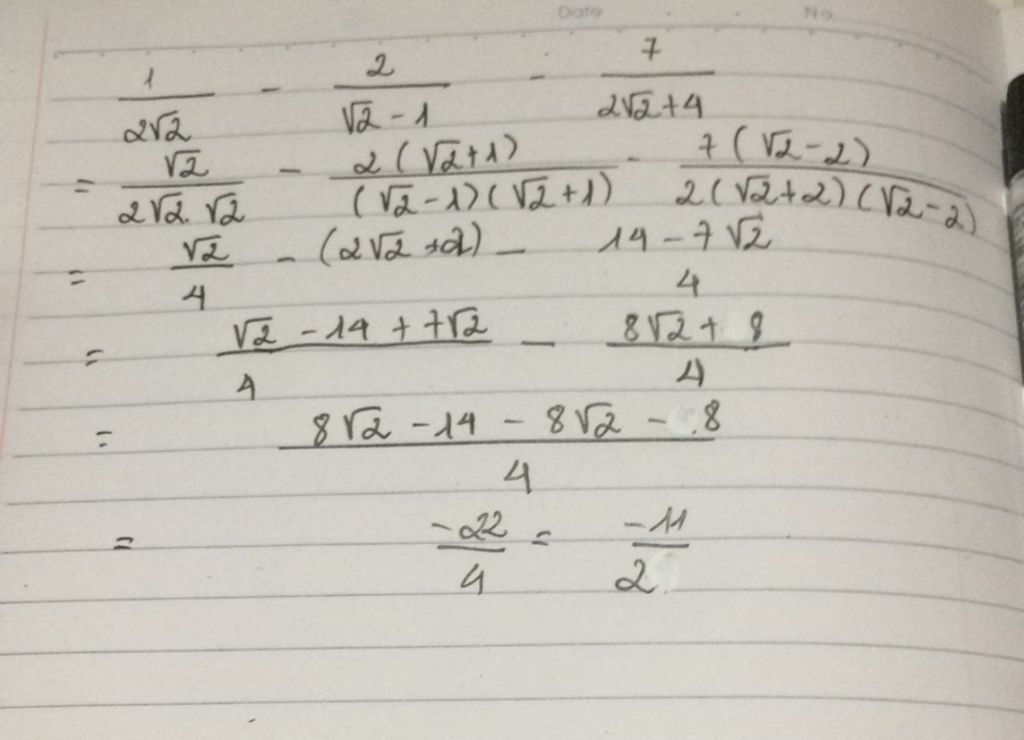 Date No
1/(2√2) - 2/(√2 - 1) - 7/(2√2 + 4)
= √2/(2√2 . √2) - 2(√2 + 1)/((√2 - 1)(√2 + 1)) - 7(√2 - 2)/(2(√2 + 2)(√2 - 2))
= √2/4 - (2√2 + 2) - (14 - 7√2)/4
= (√2 - 14 + 7√2)/4 - (8√2 + 8)/4
= (8√2 - 14 - 8√2 - 8)/4
= -22/4 = -11/2